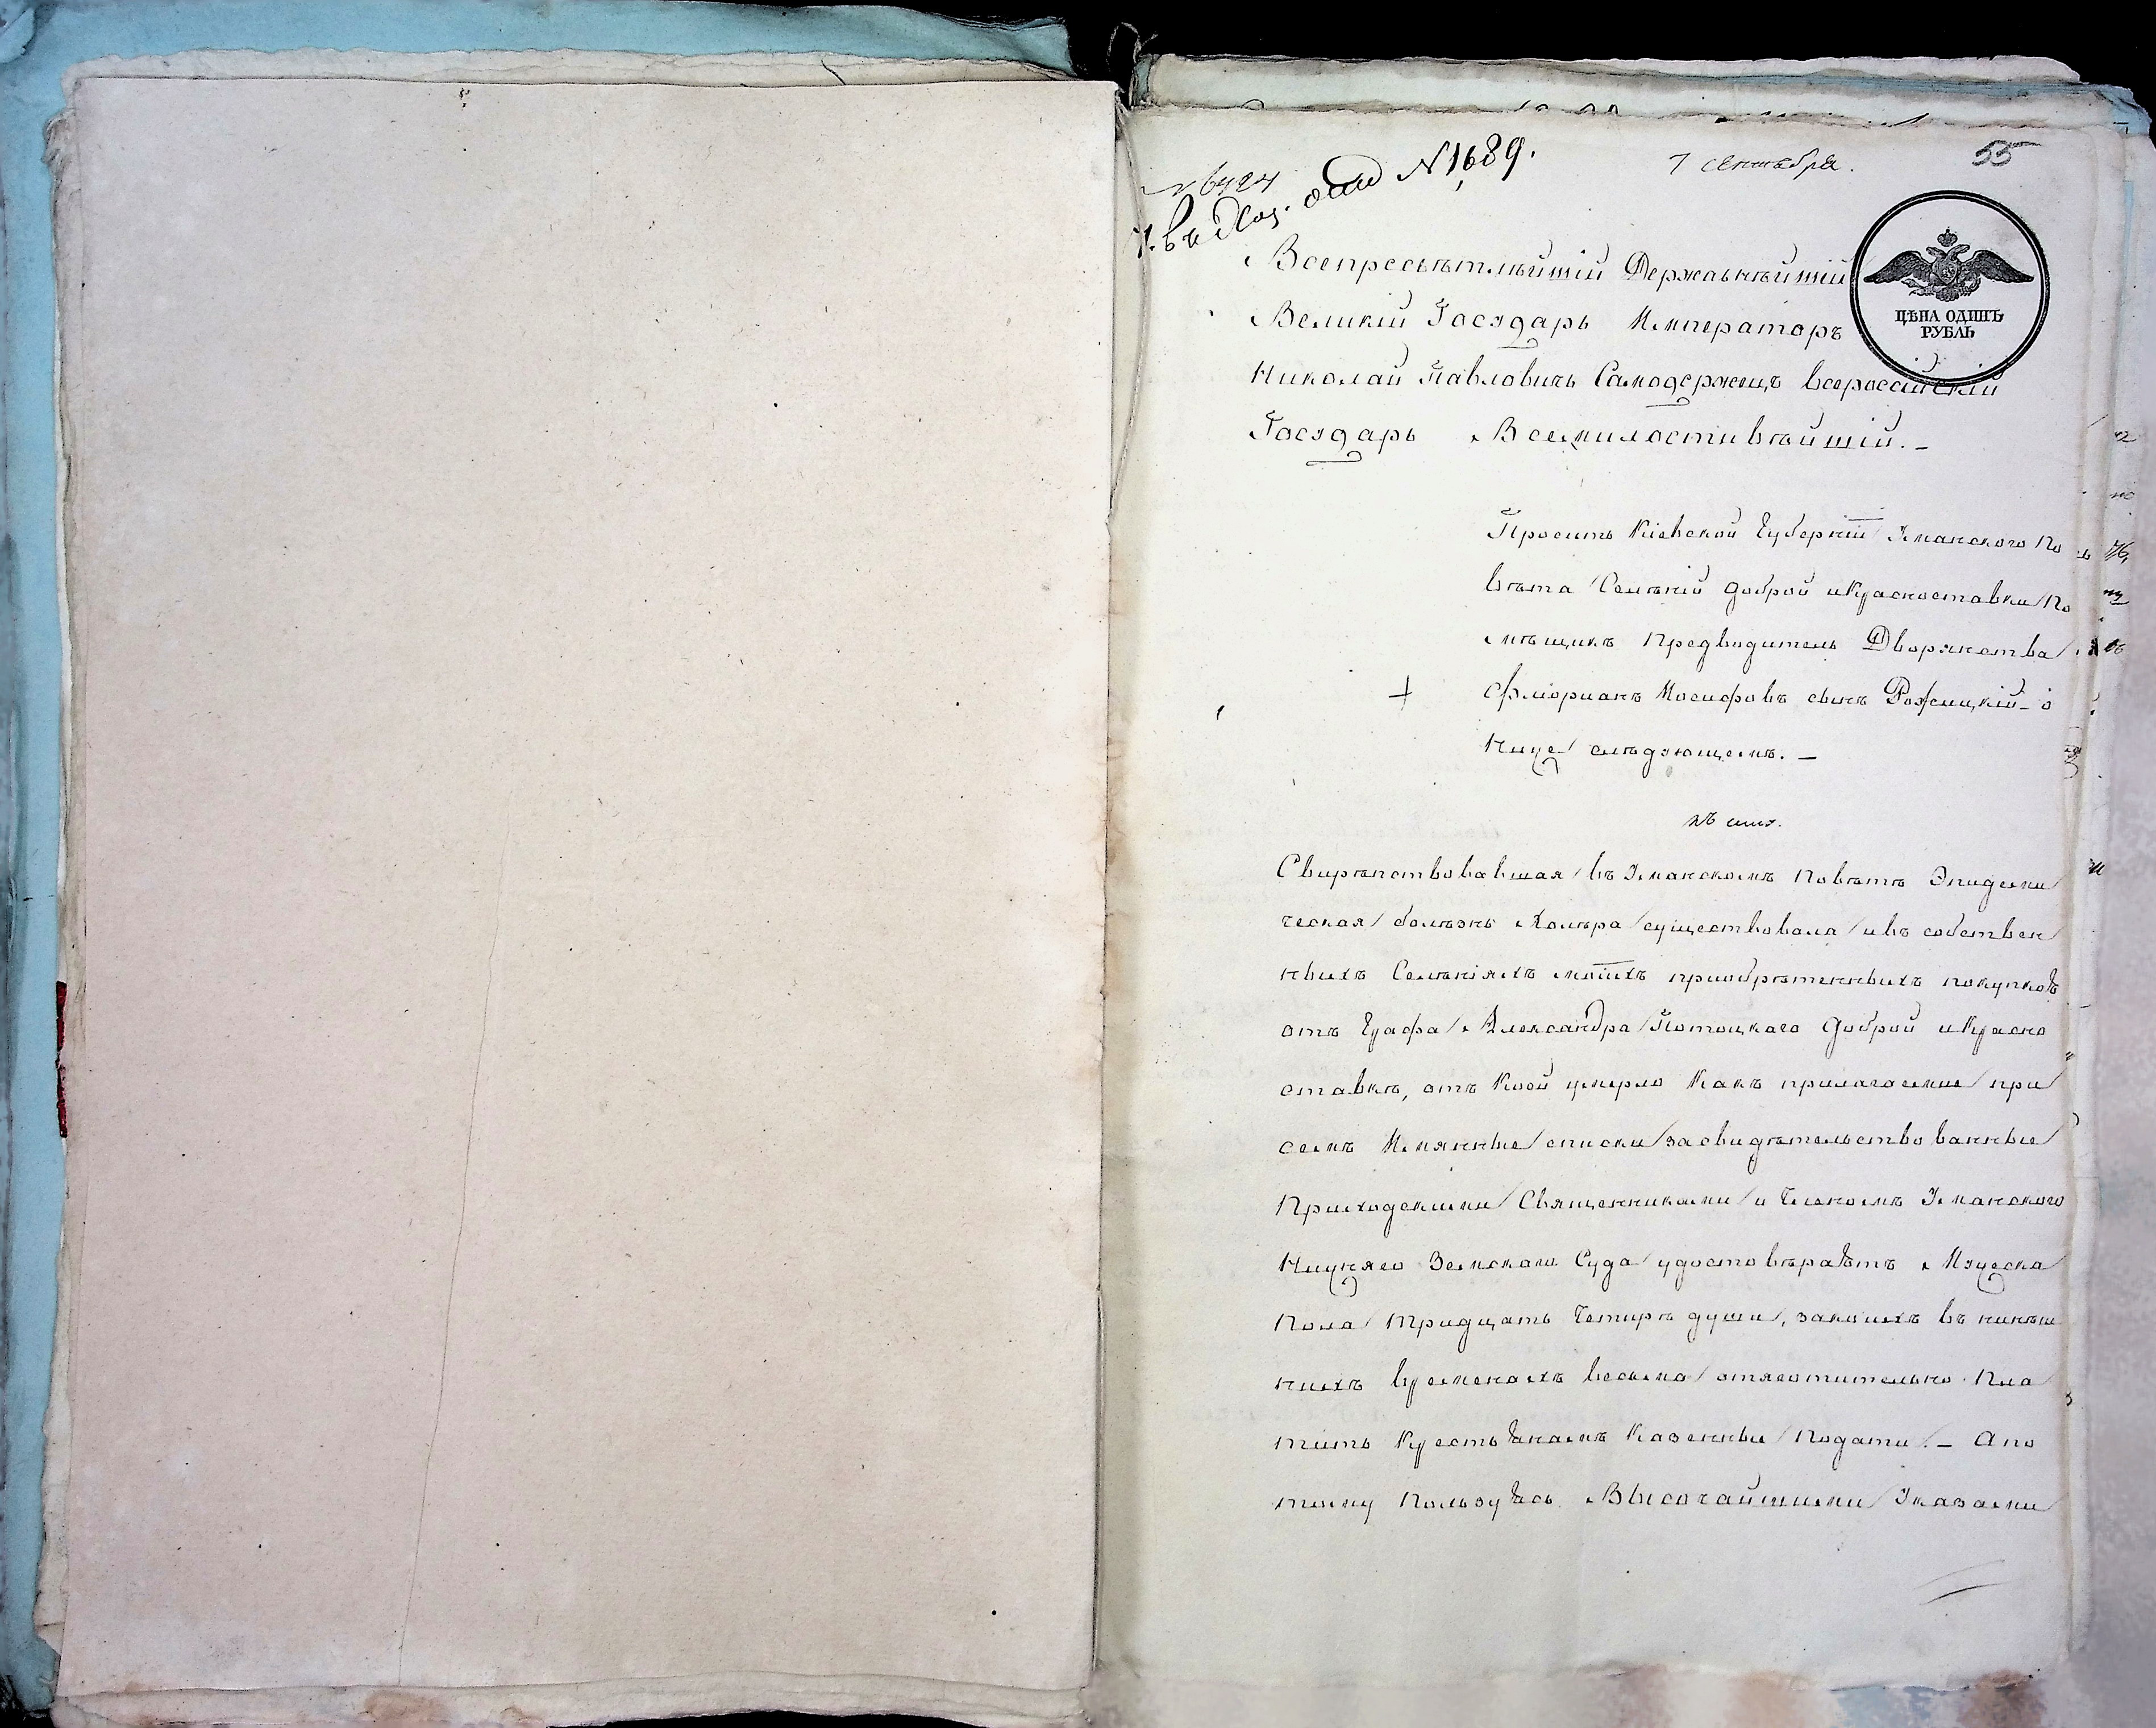 № 6424
7 сентября.
55
въ Хоз. отд № 1689.
ЦѢНА ОДИНЪ
РУБЛЬ
Всепресвѣтлѣйшій Державнѣйшій
Великій Государь Императоръ
Николай Павловичь Самодержецъ всероссійскій
Государь Всемилостивѣйшій. —
Проситъ Кіевской Губерніи Уманского По
вѣта Селѣній Доброй и Красноставки По
мѣщикъ Предводитель Дворянства
Флюріанъ Иосифовъ сынъ Рожицкій о
ниже слѣдующемъ. —
Свирѣпствовавшая въ Уманскомъ Повѣтѣ Эпидеми
ческая болѣзнь Холѣра существовала и въ собствен
ныхъ Селѣніяхъ моіихъ приобрѣтенныхъ покупкою
отъ Графа Александра Потоцкаго Доброй и Красно
ставкѣ, отъ коей умерло какъ прилагаемые при
семъ Имянные списки засвидѣтельствованные
Приходскими Священниками и Членомъ Уманского
Нижняго Земского Суда удостовѣраютъ Мужеска
Пола Тридцать Четырѣ души, за коихъ въ нинѣш
нихъ временахъ весьма отяготительно Пла
тить Крестьянамъ Казенные Подати. — А по
тому Пользуясь Высочайшими Указами